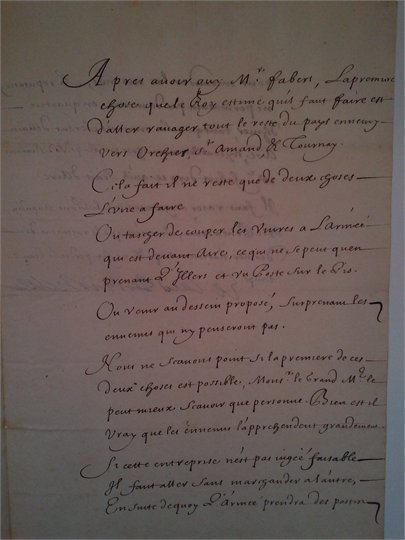 Apres auoir ouy M.r fabert, La premiere
chose que le Roy estime quis faut faire est
d'aller rauager tout le reste du pays ennemy
vers Orchies, s.t Amand & Tournay.
Cela fait il ne reste que de deux choses
L'vne a faire
Ou tascher de couper les viures a L'armée
qui est deuant Aire, ce qui ne se peut quen
prenant et va Poste sur le
Ou venir au dessein proposé, surprenant les
ennemis qui ny penseront pas.
Nous ne scauons point si la premiere de ces
deux choses est possible, Mons.r le Grand M.e le
peut mieux scauoir que personne. Bien est il
vray que les ennemis l'apprehendent grandement.
Si cette entreprise n'est pas iugée faisable
Il faut aller sans marchander a l'autre,
En suite dequoy L'Armée prendra des postes